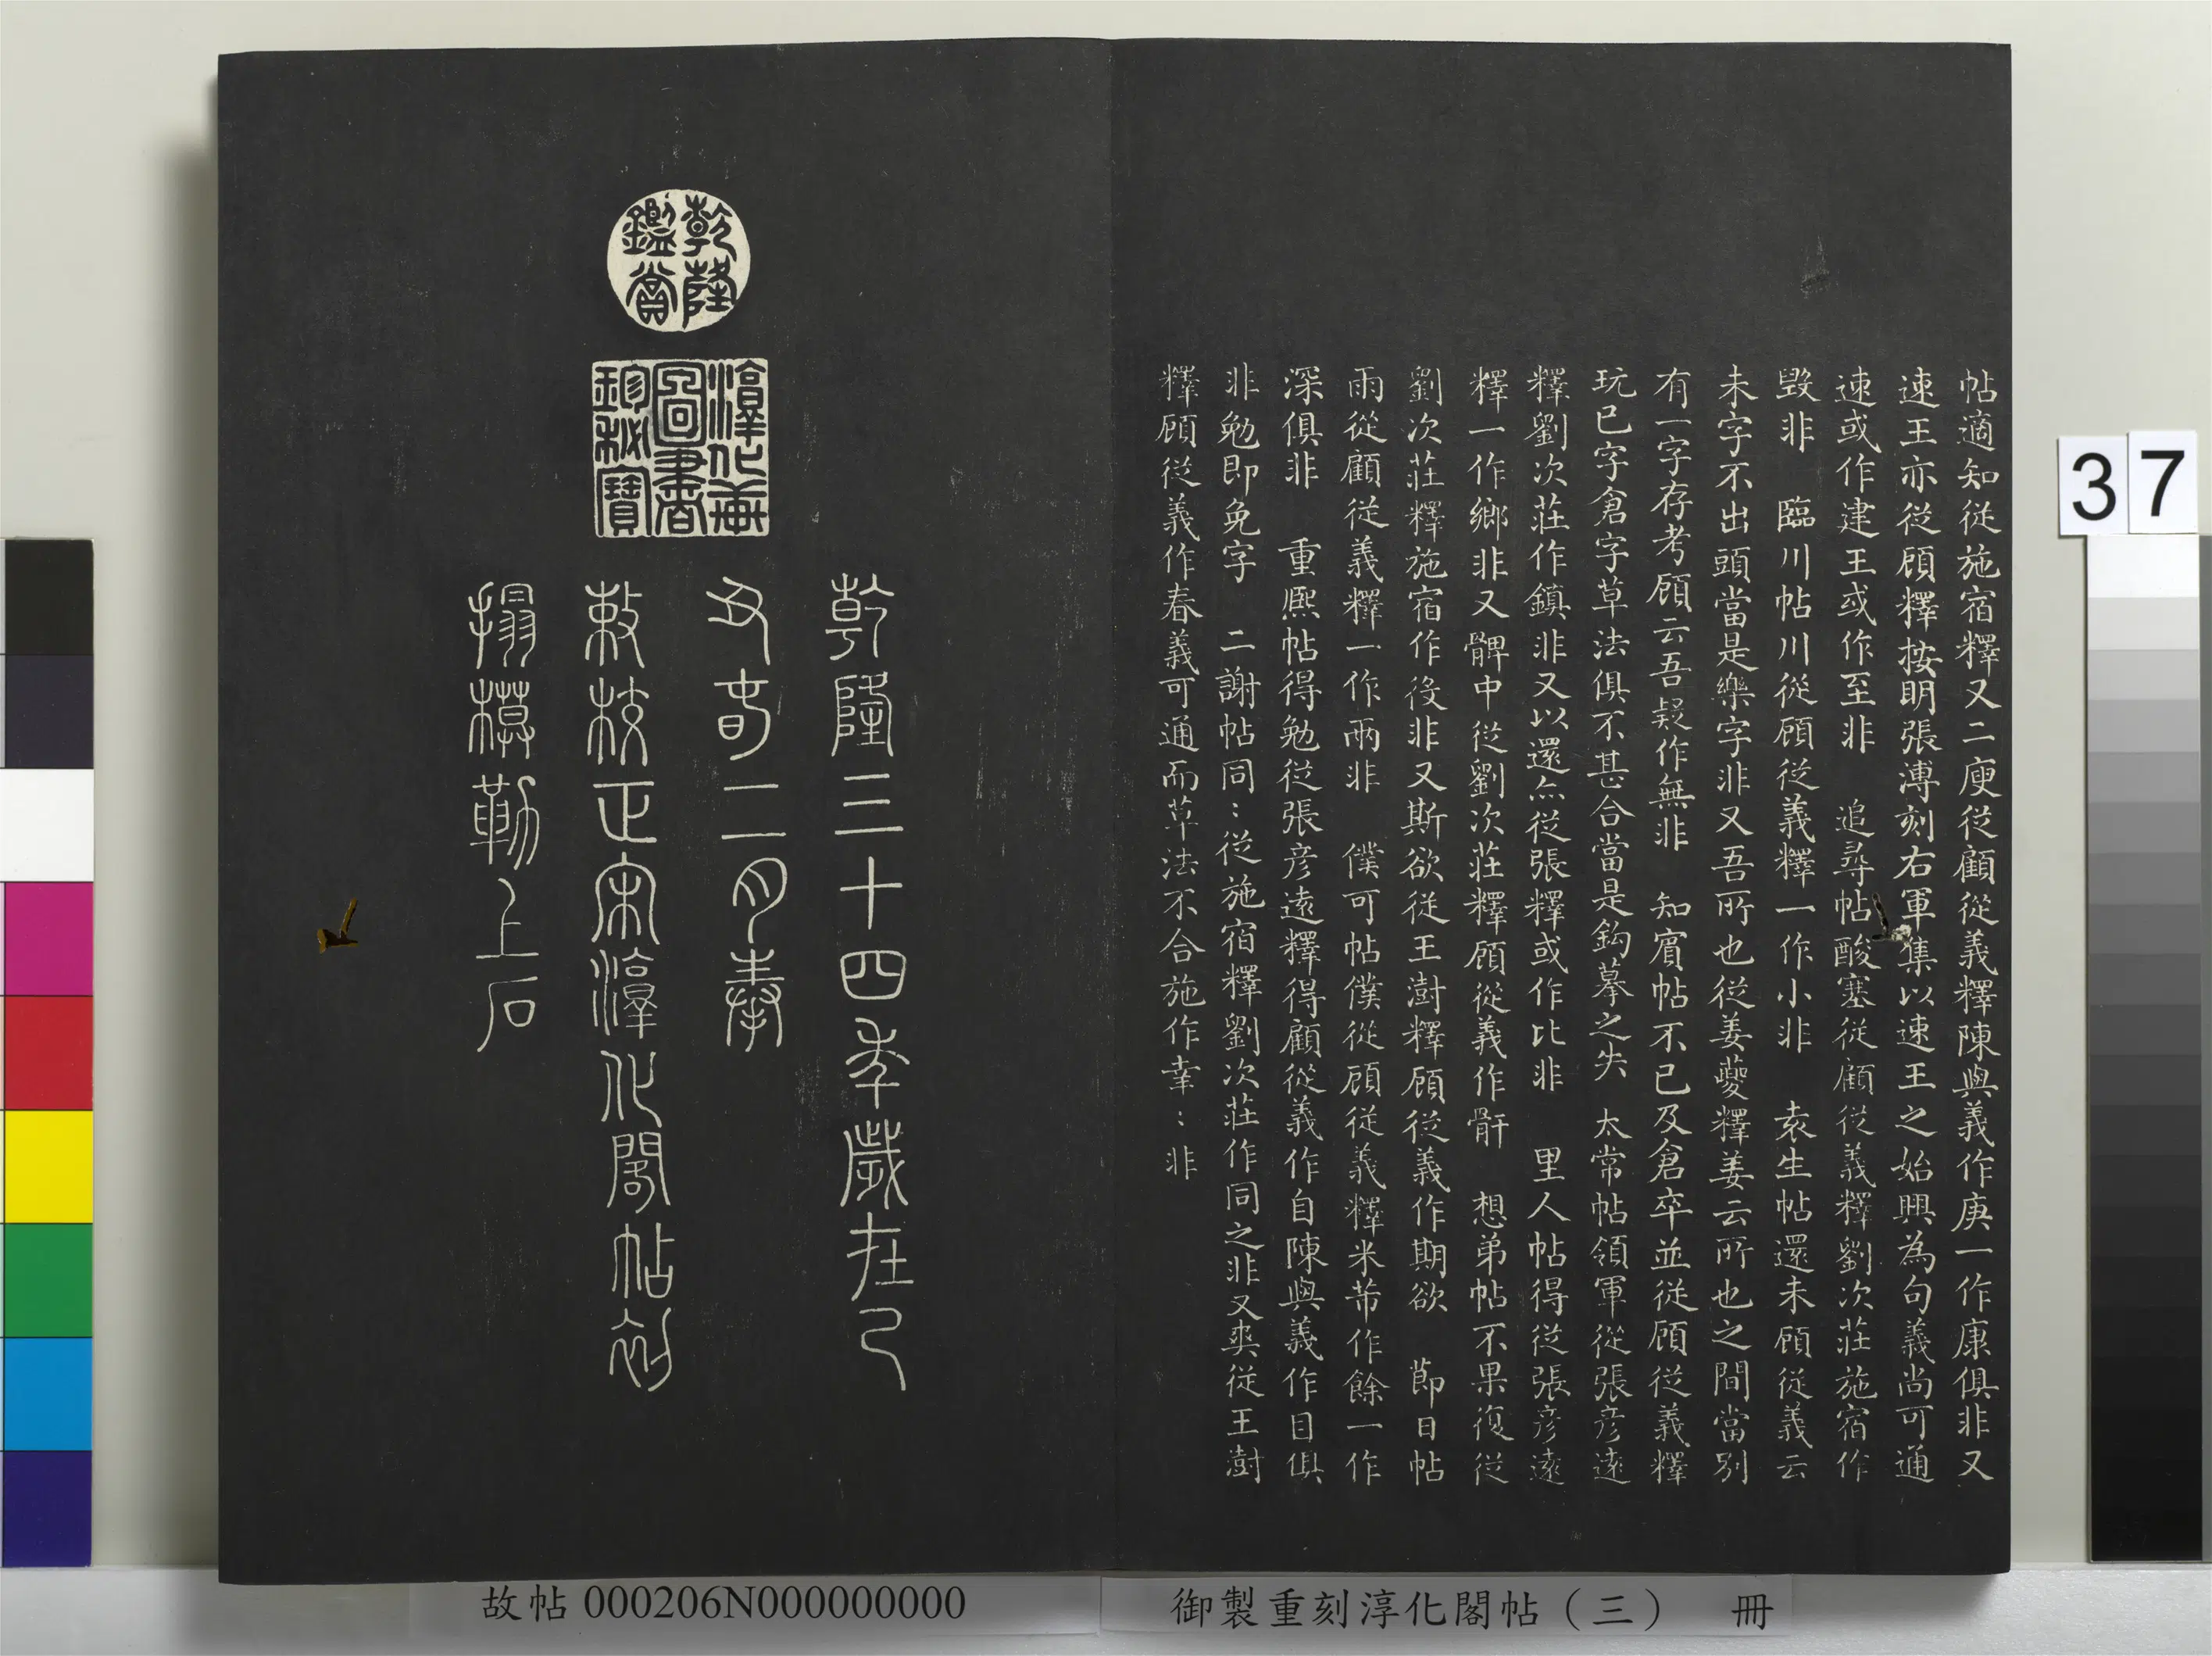 帖適知從施宿釋又二庾從顧從義釋陳與義作庚一作康俱非又
速王亦從顧釋按明張溥刻右軍集以速王之始興為句義尚可通
速或作建王或作至非　追尋帖酸塞從顧從義釋劉次莊施宿作
毀非　臨川帖川從顧從義釋一作小非　袁生帖還未顧從義云
未字不出頭當是樂字非又吾所也從姜夔釋姜云所也之間當別
有一字存考顧云吾疑作無非　知賓帖不已及倉卒並從顧從義釋
玩已字倉字草法俱不甚合當是鈎摹之失　太常帖領軍從張彥遠
釋劉次莊作鎮非又以還亦從張釋或作比非　里人帖得從張彥遠
釋一作鄉非又髀中從劉次莊釋顧從義作骭　想弟帖不果復從
劉次莊釋施宿作後非又斯欲從王澍釋顧從義作期欲　節日帖
雨從顧從義釋一作兩非　僕可帖僕從顧從義釋米芾作餘一作
深俱非　重熈帖得勉從張彥遠釋得顧從義作自陳與義作目俱
非勉即免字　二謝帖同：從施宿釋劉次莊作同之非又奭從王澍
釋顧從義作春義可通而草法不合施作幸：非
乾隆鑑賞
淳化軒圖書珍秘寶
乾隆三十四年歲在己
丑春二月奉
敕校正宋淳化閣帖刻
搨橅勒上石
37
故帖 000206N000000000
御製重刻淳化閣帖（三）　冊